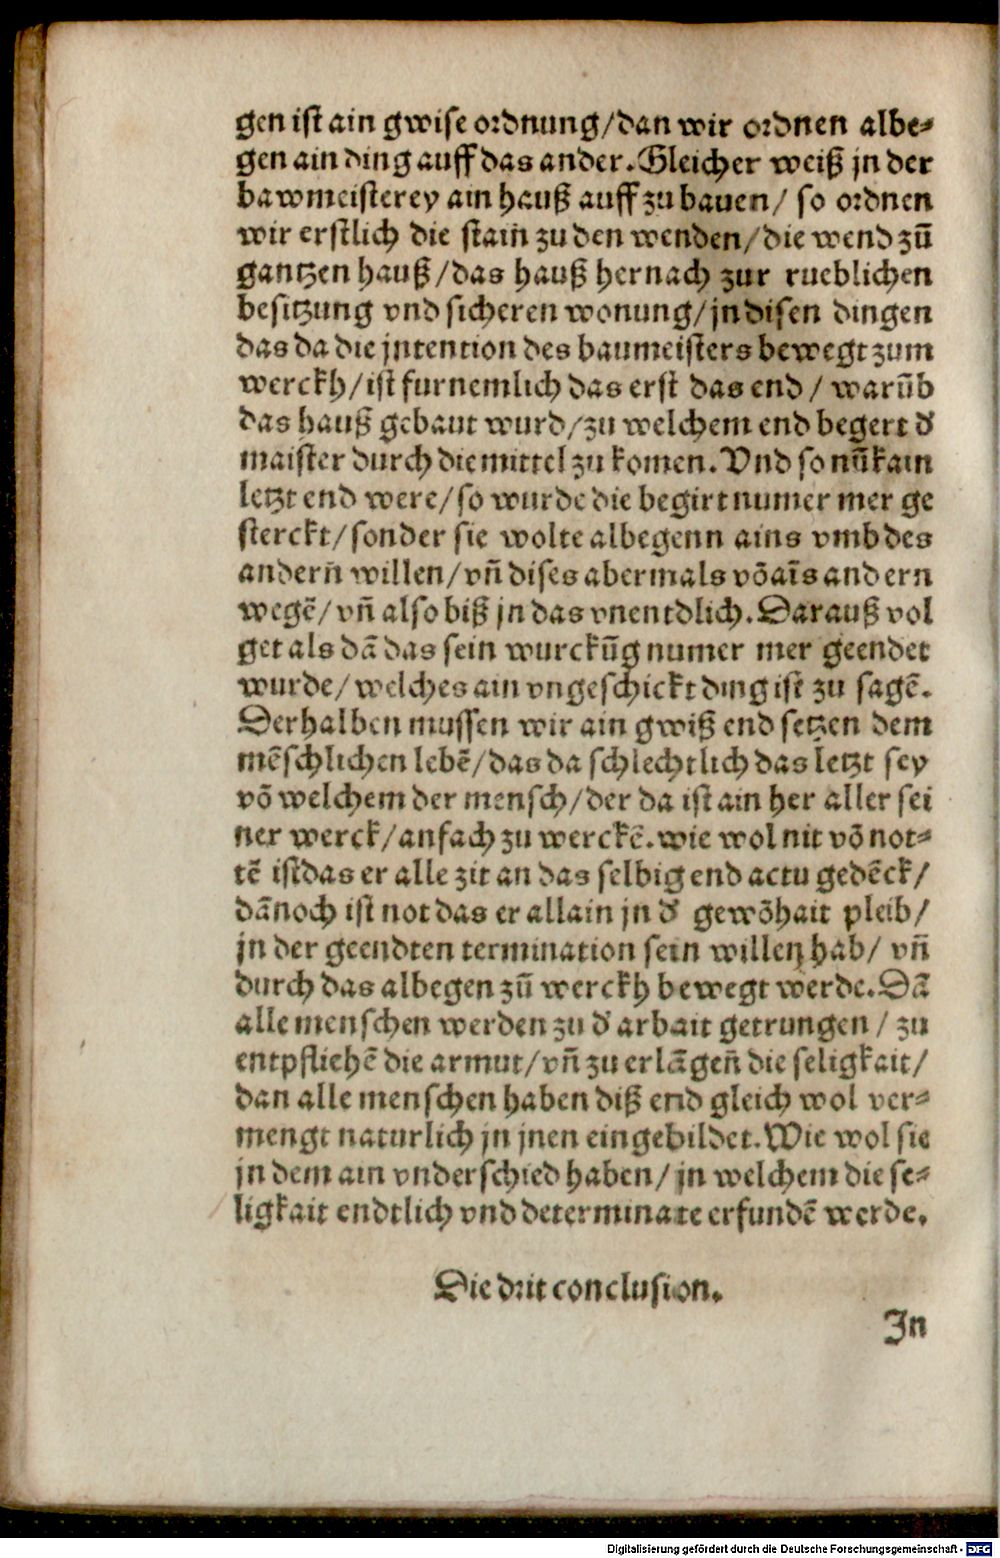 gen ist ain gwise ordnung/dan wir ordnen albe⸗
gen ain ding auff das ander. Gleicher weiß jn der
bawmeisterey ain hauß auff zu bauen/ so ordnen
wir erstlich die stain̄ zu den wenden/die wend zū
gantzen hauß/das hauß hernach zur rueblichen
besitzung vnd sicheren wonung/jn disen dingen
das da die jntention des baumeisters bewegt zum
werckh/ist furnemlich das erst das end / warūb
das hauß gebaut wurd/zu welchem end begert d̕
maister durch die mittel zu komen. Vnd so nūkain
letzt end were/so wurde die begirt numer mer ge
sterckt/sonder sie wolte albegenn ains vmb des
andern̄ willen/vn̄ dises abermals vō aīs andern
wegē/vn̄ also biß jn das vnentdlich. Darauß vol
get als dā das sein wurckūg numer mer geendet
wurde/welches ain vngeschickt ding ist zu sagē.
Derhalben mussen wir ain gwiß end setzen dem
mēschlichen lebē/das da schlechtlich das letzt sey
vō welchem der mensch/der da ist ain her aller sei
ner werck/anfach zu werckē. wie wol nit vō not⸗
tē ist das er alle zit an das selbig end actu gedēck/
dānoch ist not das er allain jn d̕ gewōhait pleib/
jn der geendten termination sein willen hab/ vn̄
durch das albegen zū werckh bewegt werde. Dā
alle menschen werden zu d̕ arbait getrungen / zu
entpfliehē die armut/vn̄ zu erlāgen̄ die seligkait/
dan alle menschen haben diß end gleich wol ver⸗
mengt naturlich jn jnen eingebildet. Wie wol sie
jn dem ain vnderschied haben/ jn welchem die se⸗
ligkait endtlich vnd determinate erfundē werde.
Die drit conclusion.
In
Digitalisierung gefördert durch die Deutsche Forschungsgemeinschaft - DFG